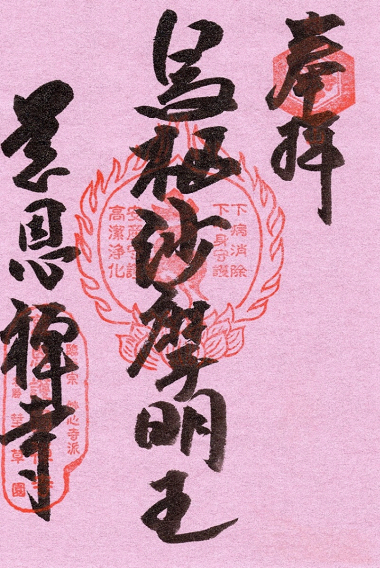 奉拝
烏枢沙摩明王
慈恩禅寺
下病消除
下半身守護
安産守護
高潔浄化
臨済宗 妙心寺派